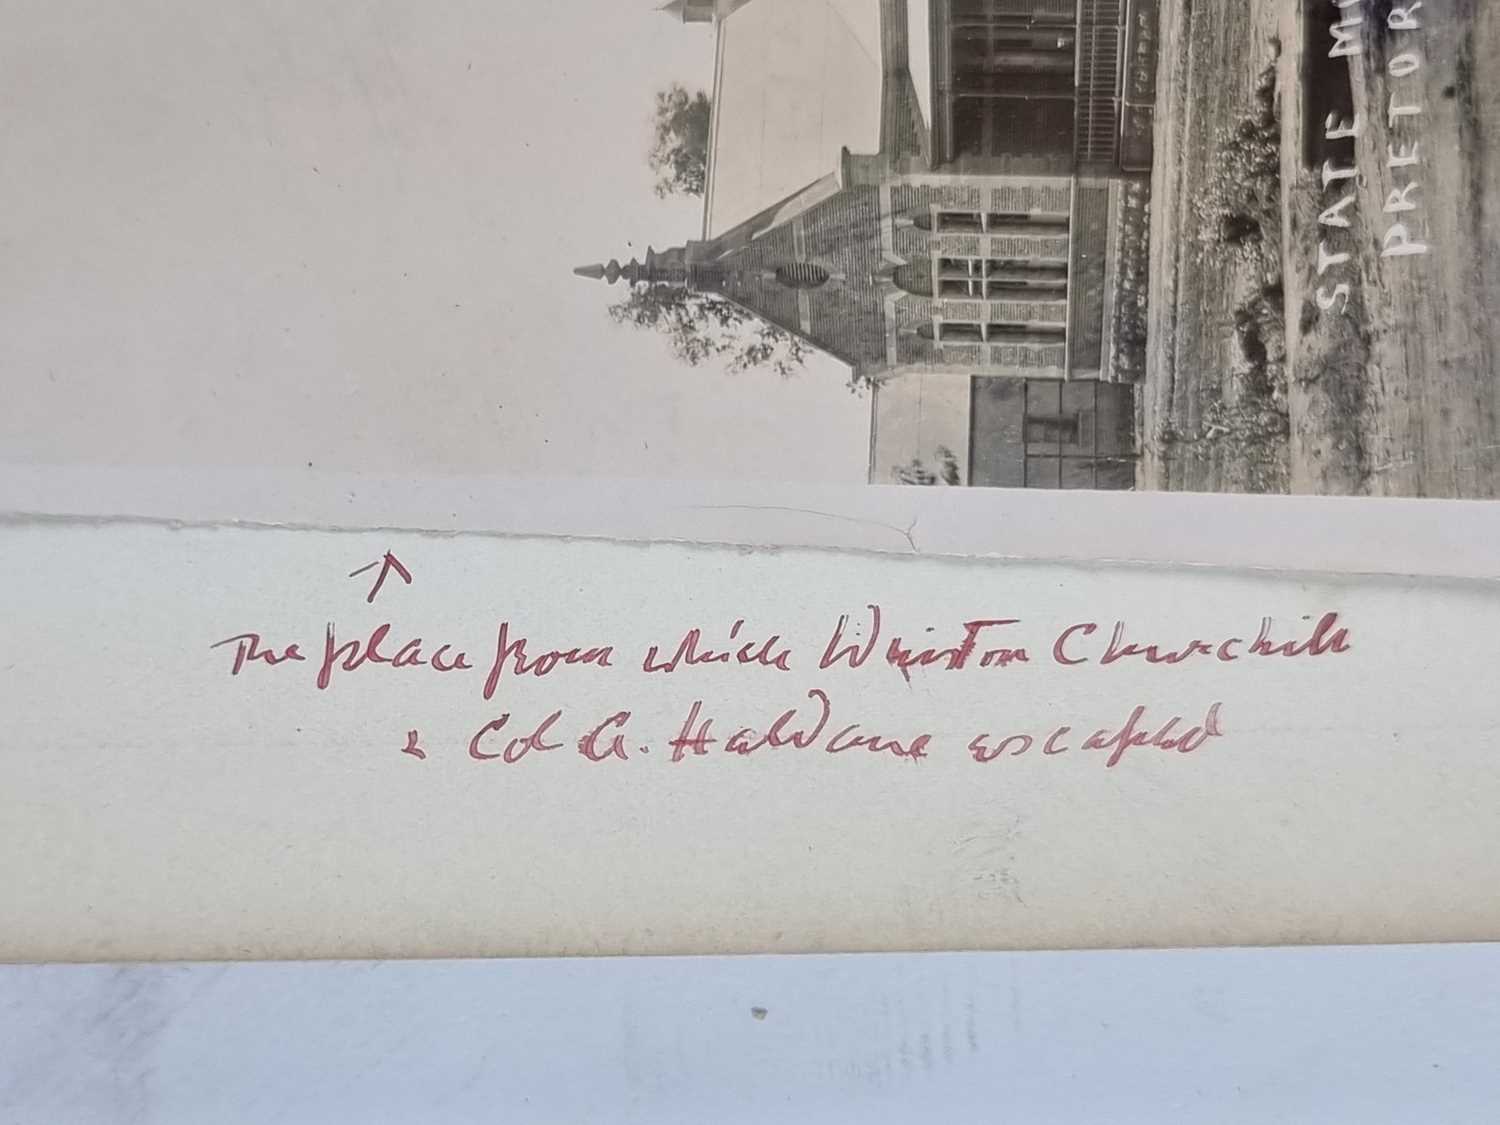 STATE M
PRETOR
The place from which Winston Churchill
& Col A. Haldane escaped